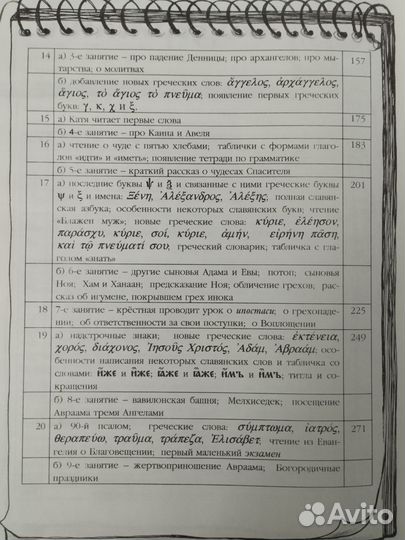 14 а) 3-е занятие – про падение Денницы; про архангелов; про мы- 157
тарства; о молитвах
б) добавление новых греческих слов: ἄγγελος, ἀρχάγγελος,
ἅγιος, τὸ ἅγιος τὸ πνεῦμα, появление первых греческих
букв: γ, κ, χ и ξ.
15 а) Катя читает первые слова 175
б) 4-е занятие – про Каина и Авеля
16 а) чтение о чуде с пятью хлебами; таблички с формами глаго- 183
лов «идти» и «иметь»; появление тетради по грамматике
б) 5-е занятие – краткий рассказ о чудесах Спасителя
17 а) последние буквы ѱ и ѯ и связанные с ними греческие буквы 201
ψ и ξ и имена: Ξένη, Ἀλέξανδρος, Ἀλέξης; полная славян-
ская азбука; особенности некоторых славянских букв; чтение
«Блажен муж»; новые греческие слова: κύριε, ἐλέησον,
παράσχυ, κύριε, σοί, κύριε, ἀμήν, εἰρήνη πᾶση,
καὶ τῷ πνεύματί σου, греческий словарик; табличка с гла-
голом «знать»
б) 6-е занятие – другие сыновья Адама и Евы; потоп; сыновья
Ноя; Хам и Ханаан; предсказание Ноя; обличение грехов, рас-
сказ об игумене, покрывшем грех инока
18 7-е занятие – крёстная проводит урок о ипостаси; о грехопаде- 225
нии; об ответственности за свои поступки; о Воплощении
19 а) надстрочные знаки; новые греческие слова: ἐκτένεια, 249
χορός, διάχονος, Ἰησοῦς Χριστός, Ἀδάμ, Ἀβραάμ; осо-
бенности написания некоторых славянских слов и табличка со
словами: и҆̀же и и҆́же; ꙗ҆̀же и ꙗ҆́же; и҆́мъ и и҆̀мъ; титла и со-
кращения
б) 8-е занятие – вавилонская башня; Мелхиседек; посещение
Авраама тремя Ангелами
20 а) 90-й псалом; греческие слова: σύμπτωμα, ἰατρός, 271
θεραπεύω, τραῦμα, τράπεζα, Ἐλισάβετ, чтение из Еван-
гелия о Благовещении; первый маленький экзамен
б) 9-е занятие – жертвоприношение Авраама; Богородичные
праздники
Avito